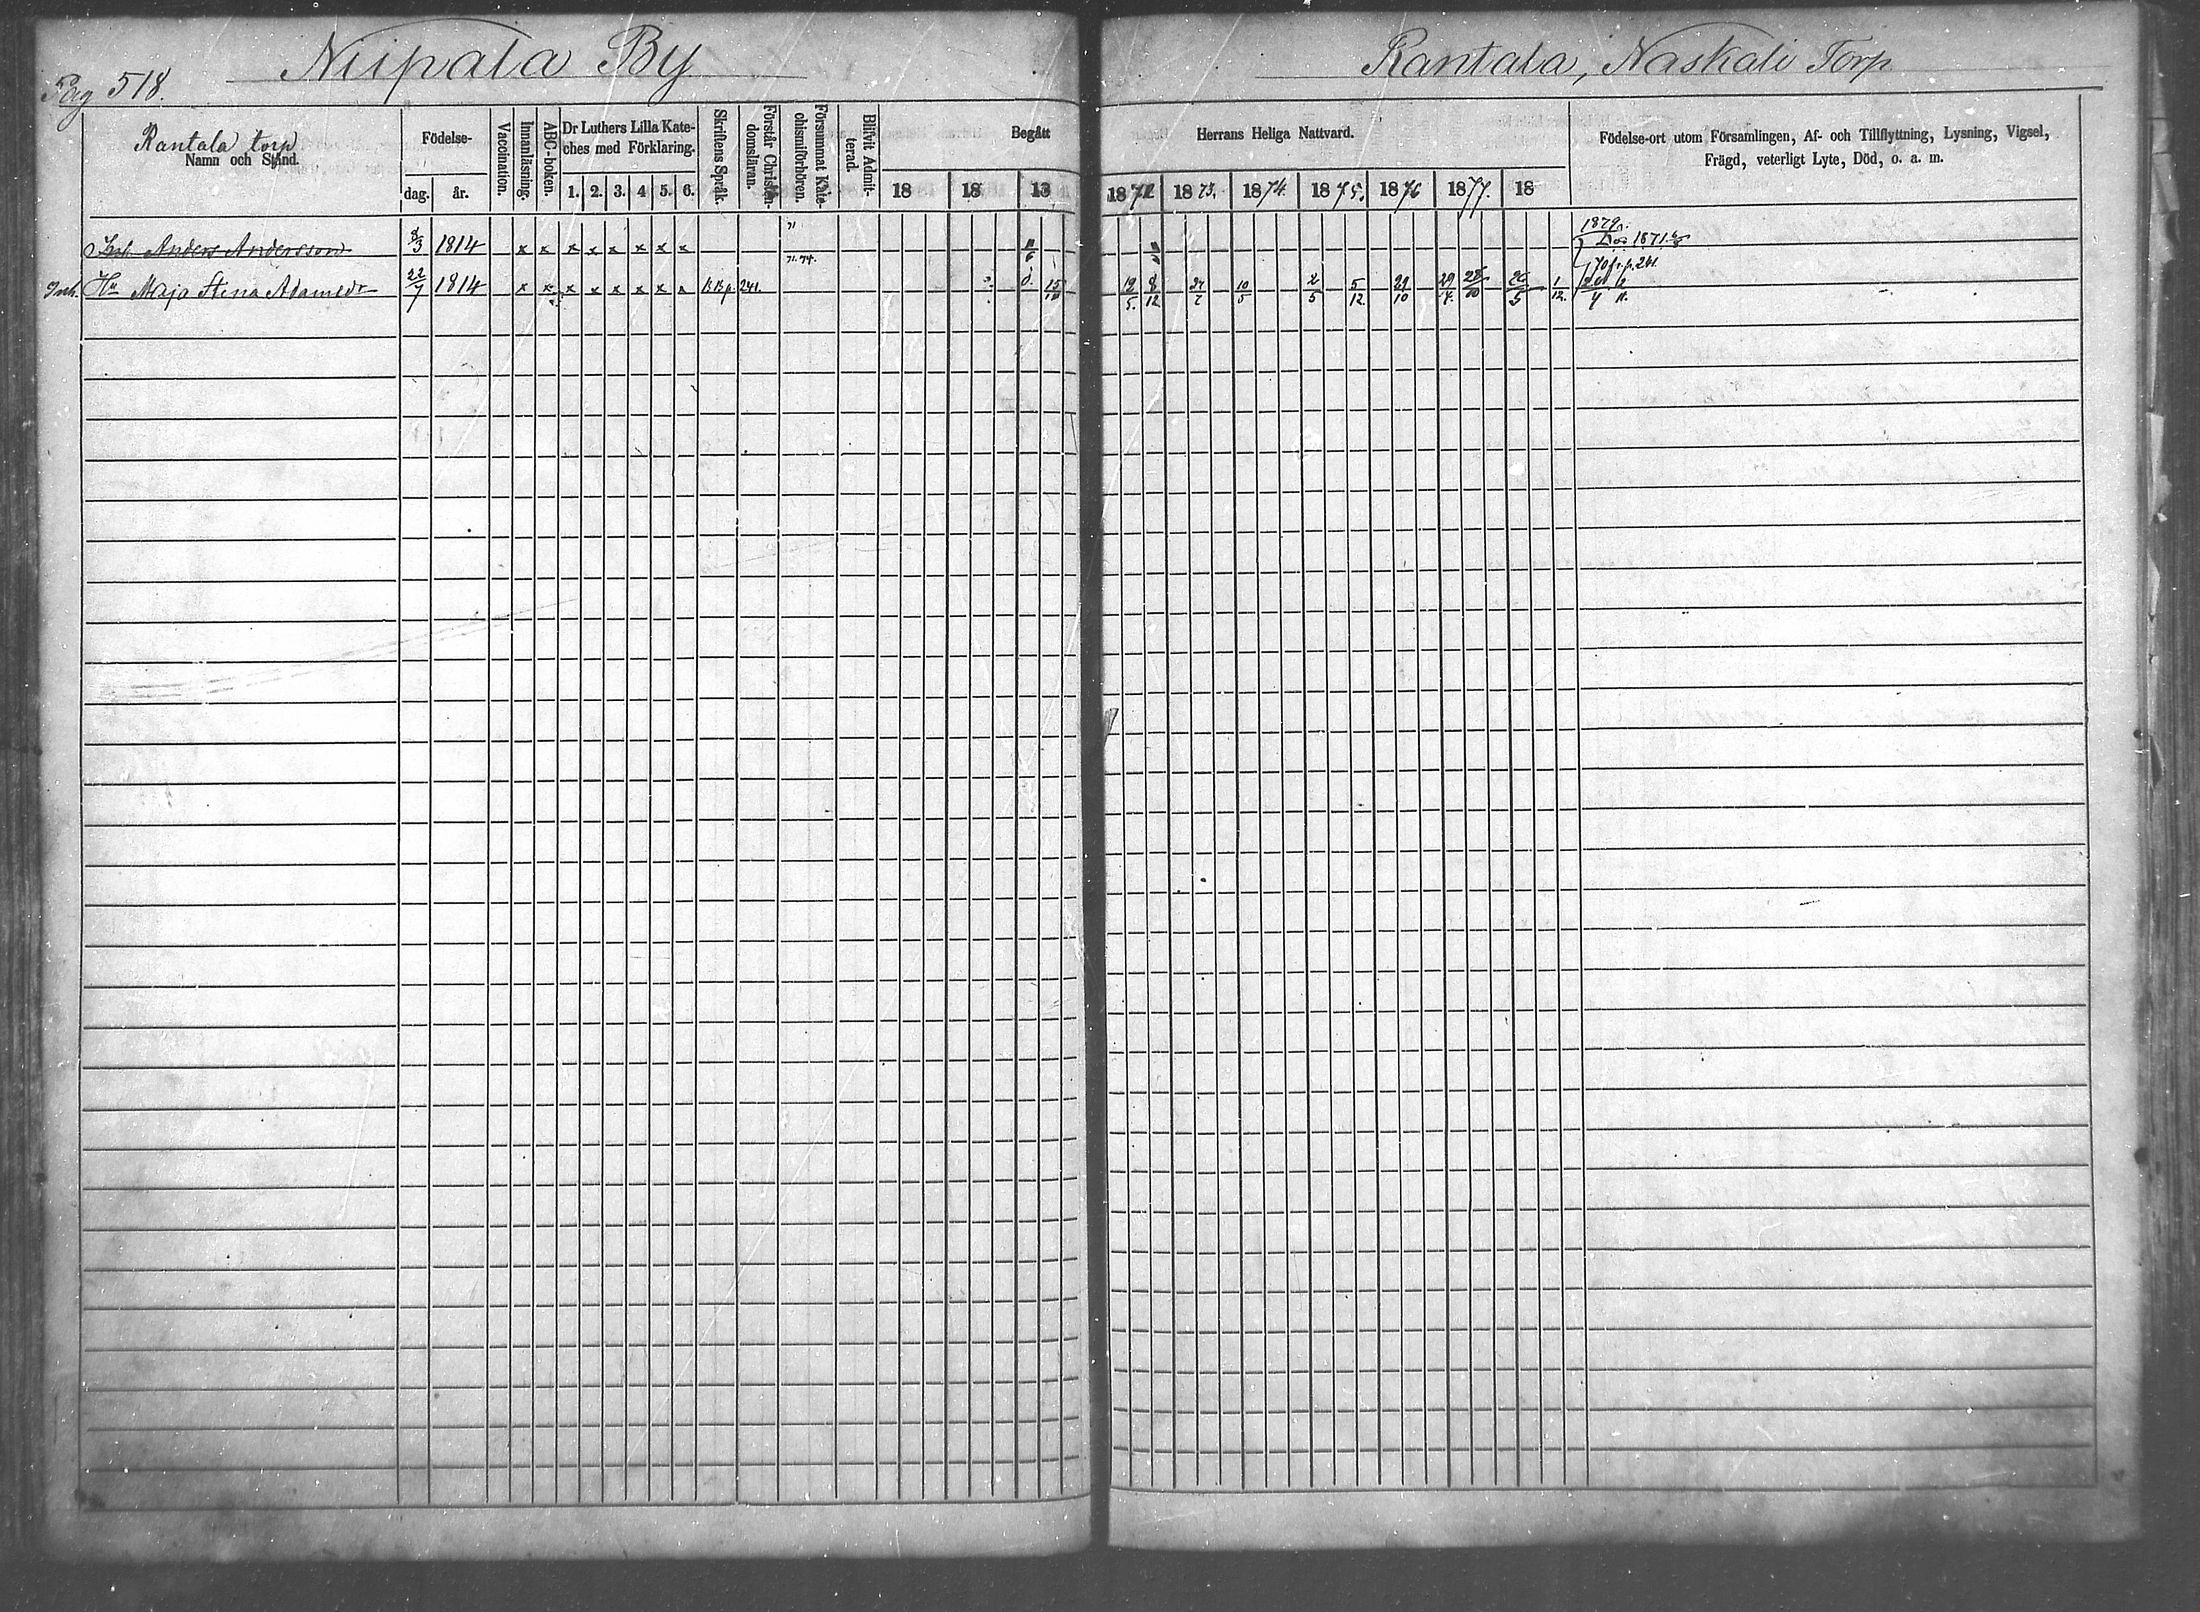 Niipala By
Rantala, Naskali Torp
Pag 518.
Rantala torp
Namn och Stånd.
Födelse-
dag. år.
Vaccination.
Innanläsning.
ABC-boken.
Dr Luthers Lilla Kate-
ches med Förklaring.
1. 2. 3. 4 5. 6.
Skriftens Språk.
Förstår Christen-
domsläran.
Försummat Kate-
chismiförhören.
Blifvit Admit-
terad.
Begått
Herrans Heliga Nattvard.
18 18 18 1872 1873. 1874. 1875. 1876 1877. 18
Födelse-ort utom Församlingen, Af- och Tillflyttning, Lysning, Vigsel,
Frägd, veterligt Lyte, Död, o. a. m.
Inh. Anders Andersson 8/3 1814 x x x x x x x x 71 Död 1871
Inh. Hu Maja Stina Adamsdr 22/7 1814 x x x x x x x x 71. 74. 15 19/5. 8/12 10/5 2/5 5/12. 29/10 29/4. 28/10 26/5 1/12.